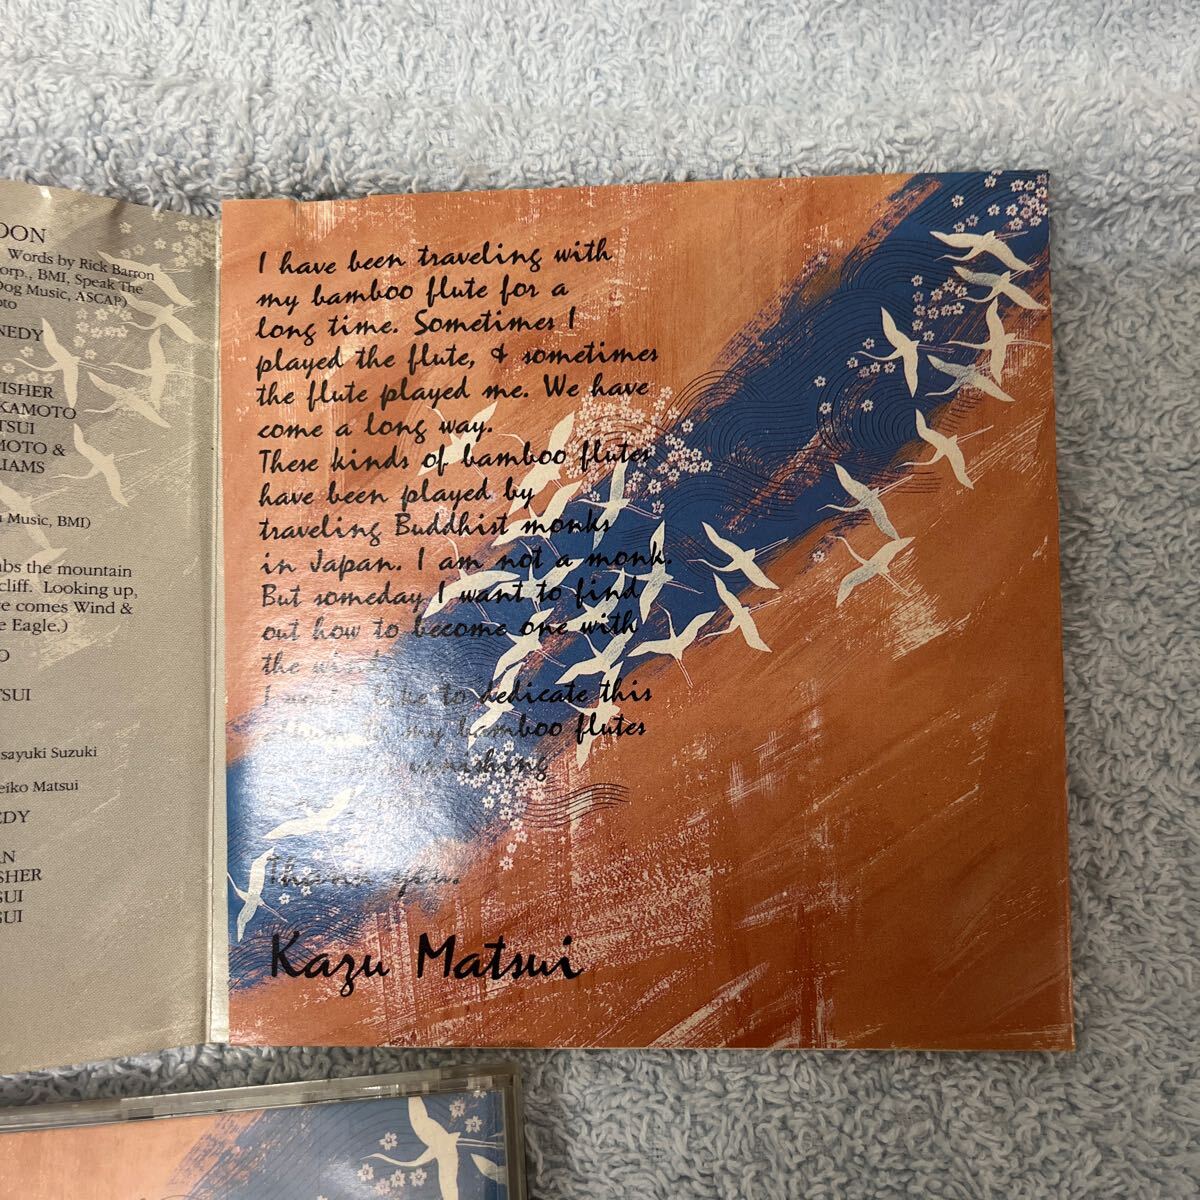 OON
Words by Rick Barron
orp., BMI, Speak The
Dog Music, ASCAP)
oto
NEDY
ISHER
KAMOTO
TSUI
MOTO &
IAMS
Music, BMI)
mbs the mountain
cliff. Looking up,
re comes Wind &
e Eagle.)
O
TSUI
sayuki Suzuki
eiko Matsui
EDY
AN
SHER
SUI
SUI
I have been traveling with
my bamboo flute for a
long time. Sometimes I
played the flute, & sometimes
the flute played me. We have
come a long way.
These kinds of bamboo flutes
have been played by
traveling Buddhist monks
in Japan. I am not a monk.
But someday I want to find
out how to become one with
the wind
I would like to dedicate this
album to my bamboo flutes
vanishing
Thank you.
Kazu Matsui